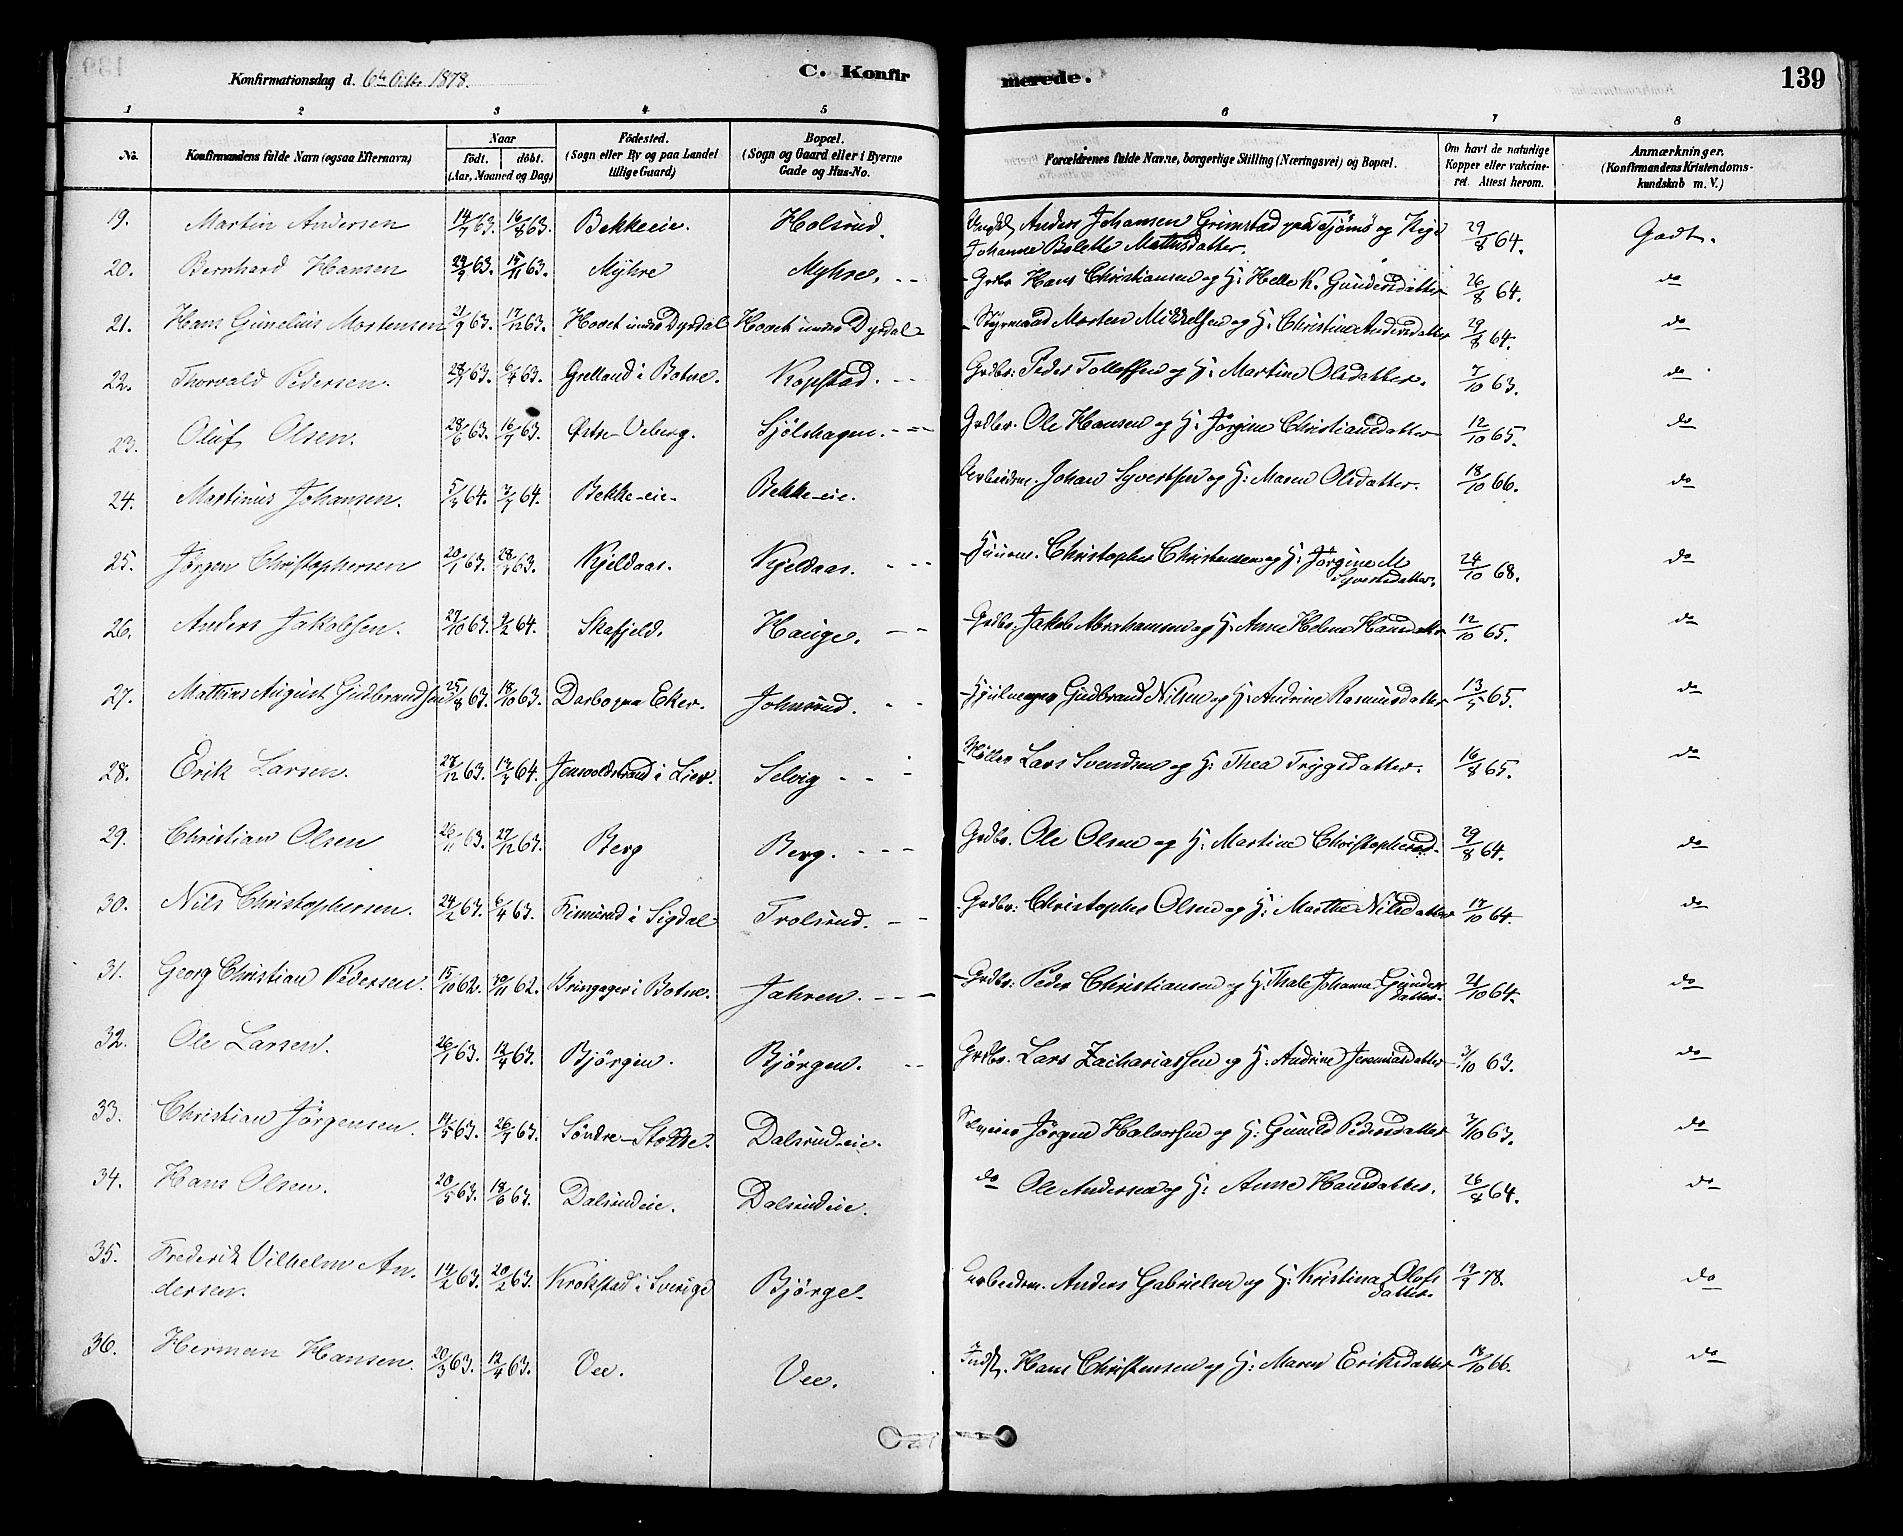 Konfirmationsdag d. 6te Octr 1878.
C. Konfir
merede.
139
1 2 3 4 5 6 7 8
No. Konfirmandens fulde Navn (ogsaa Efternavn) Naar født. døbt. (Aar, Maaned og Dag) Fødested. (Sogn eller By og paa Landet tillige Gaard) Bopæl. (Sogn og Gaard eller i Byerne Gade og Hus-No. Forældrenes fulde Navne, borgerlige Stilling (Næringsvei) og Bopæl. Om havt de naturlige Kopper eller vakcineret. Attest herom. Anmærkninger. (Konfirmandens Kristendomskundskab m. V.)
19. Martin Andersen 14/7 63. 16/8 63. Bekkeeie. Holsrud. Anders Johansen Grimstad Tjømø og Pige
Johanne Bolette Mathisdatter. 29/8 64. Godt.
20. Bernhard Hansen 29/9 63. 15/11 63. Myhre Myhre. Grdbr Hans Christiansen og H: Helle K. Gundersdatter 26/8 64. do
21. Hans Gunelius Mortensen 2/9 63. 17/12 63. Hovet under Dyrdal Hovet under Dyrdal Styrmand Morten Mikkelsen og H: Christine Andersdatter 29/8 64. do
22. Thorvald Pedersen. 28/1 63. 6/4 63. Grelland i Botne. Kopstad. Grdbr: Peder Tollefsen og H: Martine Olsdatter. 7/10 63. do
23. Oluf Olsen. 28/6 63. 16/7 63. Østre-Veberg. Sjølshagen. Grdbr. Ole Hansen og H: Jørgine Christiansdatter 12/10 65. do
24. Martinus Johansen. 5/3 64. 3/7 64. Bekke-eie. Bekke-eie. Arbeidsm. Johan Syvertsen og H: Maren Olsdatter. 18/10 66. do
25. Jørgen Christophersen 20/1 63. 28/3 63. Kjeldaas. Kjeldaas. Huusm. Christopher Christensen og H: Jørgine M
Syvertsdatter. 24/10 68. do
26. Anders Jakobsen. 27/10 63. 2/2 64. Skafjeld. Hauge. Grdbr: Jakob Abrahamsen og H: Anne Helene Hansdatter 12/10 65. do
27. Mathias August Gudbrandsen 25/8 63. 18/10 63. Darbo paa Eker. Johnsrud. Gudbrand Nilsen og H: Andrine Rasmusdatter 13/5 65. do
28. Erik Larsen. 27/12 63. 64. Jensvoldstrand i Lier. Selvig Møller Lars Svendsen og H: Thea Trygsdatter. 16/8 65. do
29. Christian Olsen 26/11 63. 27/12 63. Berg Berg. Grdbr. Ole Olsen og H: Martine Christophersd. 29/8 64. do
30. Nils Christophersen. 24/2 63. 6/4 63. Finnerud i Sigdal Trolsrud. Grdbr: Christopher Olsen og H: Marthe Nilsdatter 17/10 64. do
31. Georg Christian Pedersen. 15/10 62. 30/11 62. Bringager i Botne. Jahren. Grdbr: Peder Christiansen og H: Thale Johanne Gunders
datter. 21/10 64. do
32. Ole Larsen. 26/1 63. 12/4 63. Bjørgen. Bjørgen. Grdbr. Lars Zachariassen og H: Andrine Jeremiasdatter 3/10 63. do
33. Christian Jørgensen. 14/5 63. 26/7 63. Søndre-Stokke. Dalsrud-eie. Selveier Jørgen Halvorsen og H: Gunild Pedersdatter 7/10 63. do
34. Hans Olsen. 20/5 63. 18/6 63. Dalsrudeie. Dalsrudeie. do Ole Andersen og H: Anne Hansdatter. 26/8 64. do
35. Frederik Vilhelm An-
dersen. 14/2 63. 20/2 63. Krokstad i Sverige Bjørge. Arbeidsm. Anders Gabrielsen og H: Kristina Olofs
datter. 19/9 78. do
36. Herman Hansen. 20/3 63. 12/4 63. Vee. Vee. Indst. Hans Christensen og H: Maren Eriksdatter 18/10 66. do